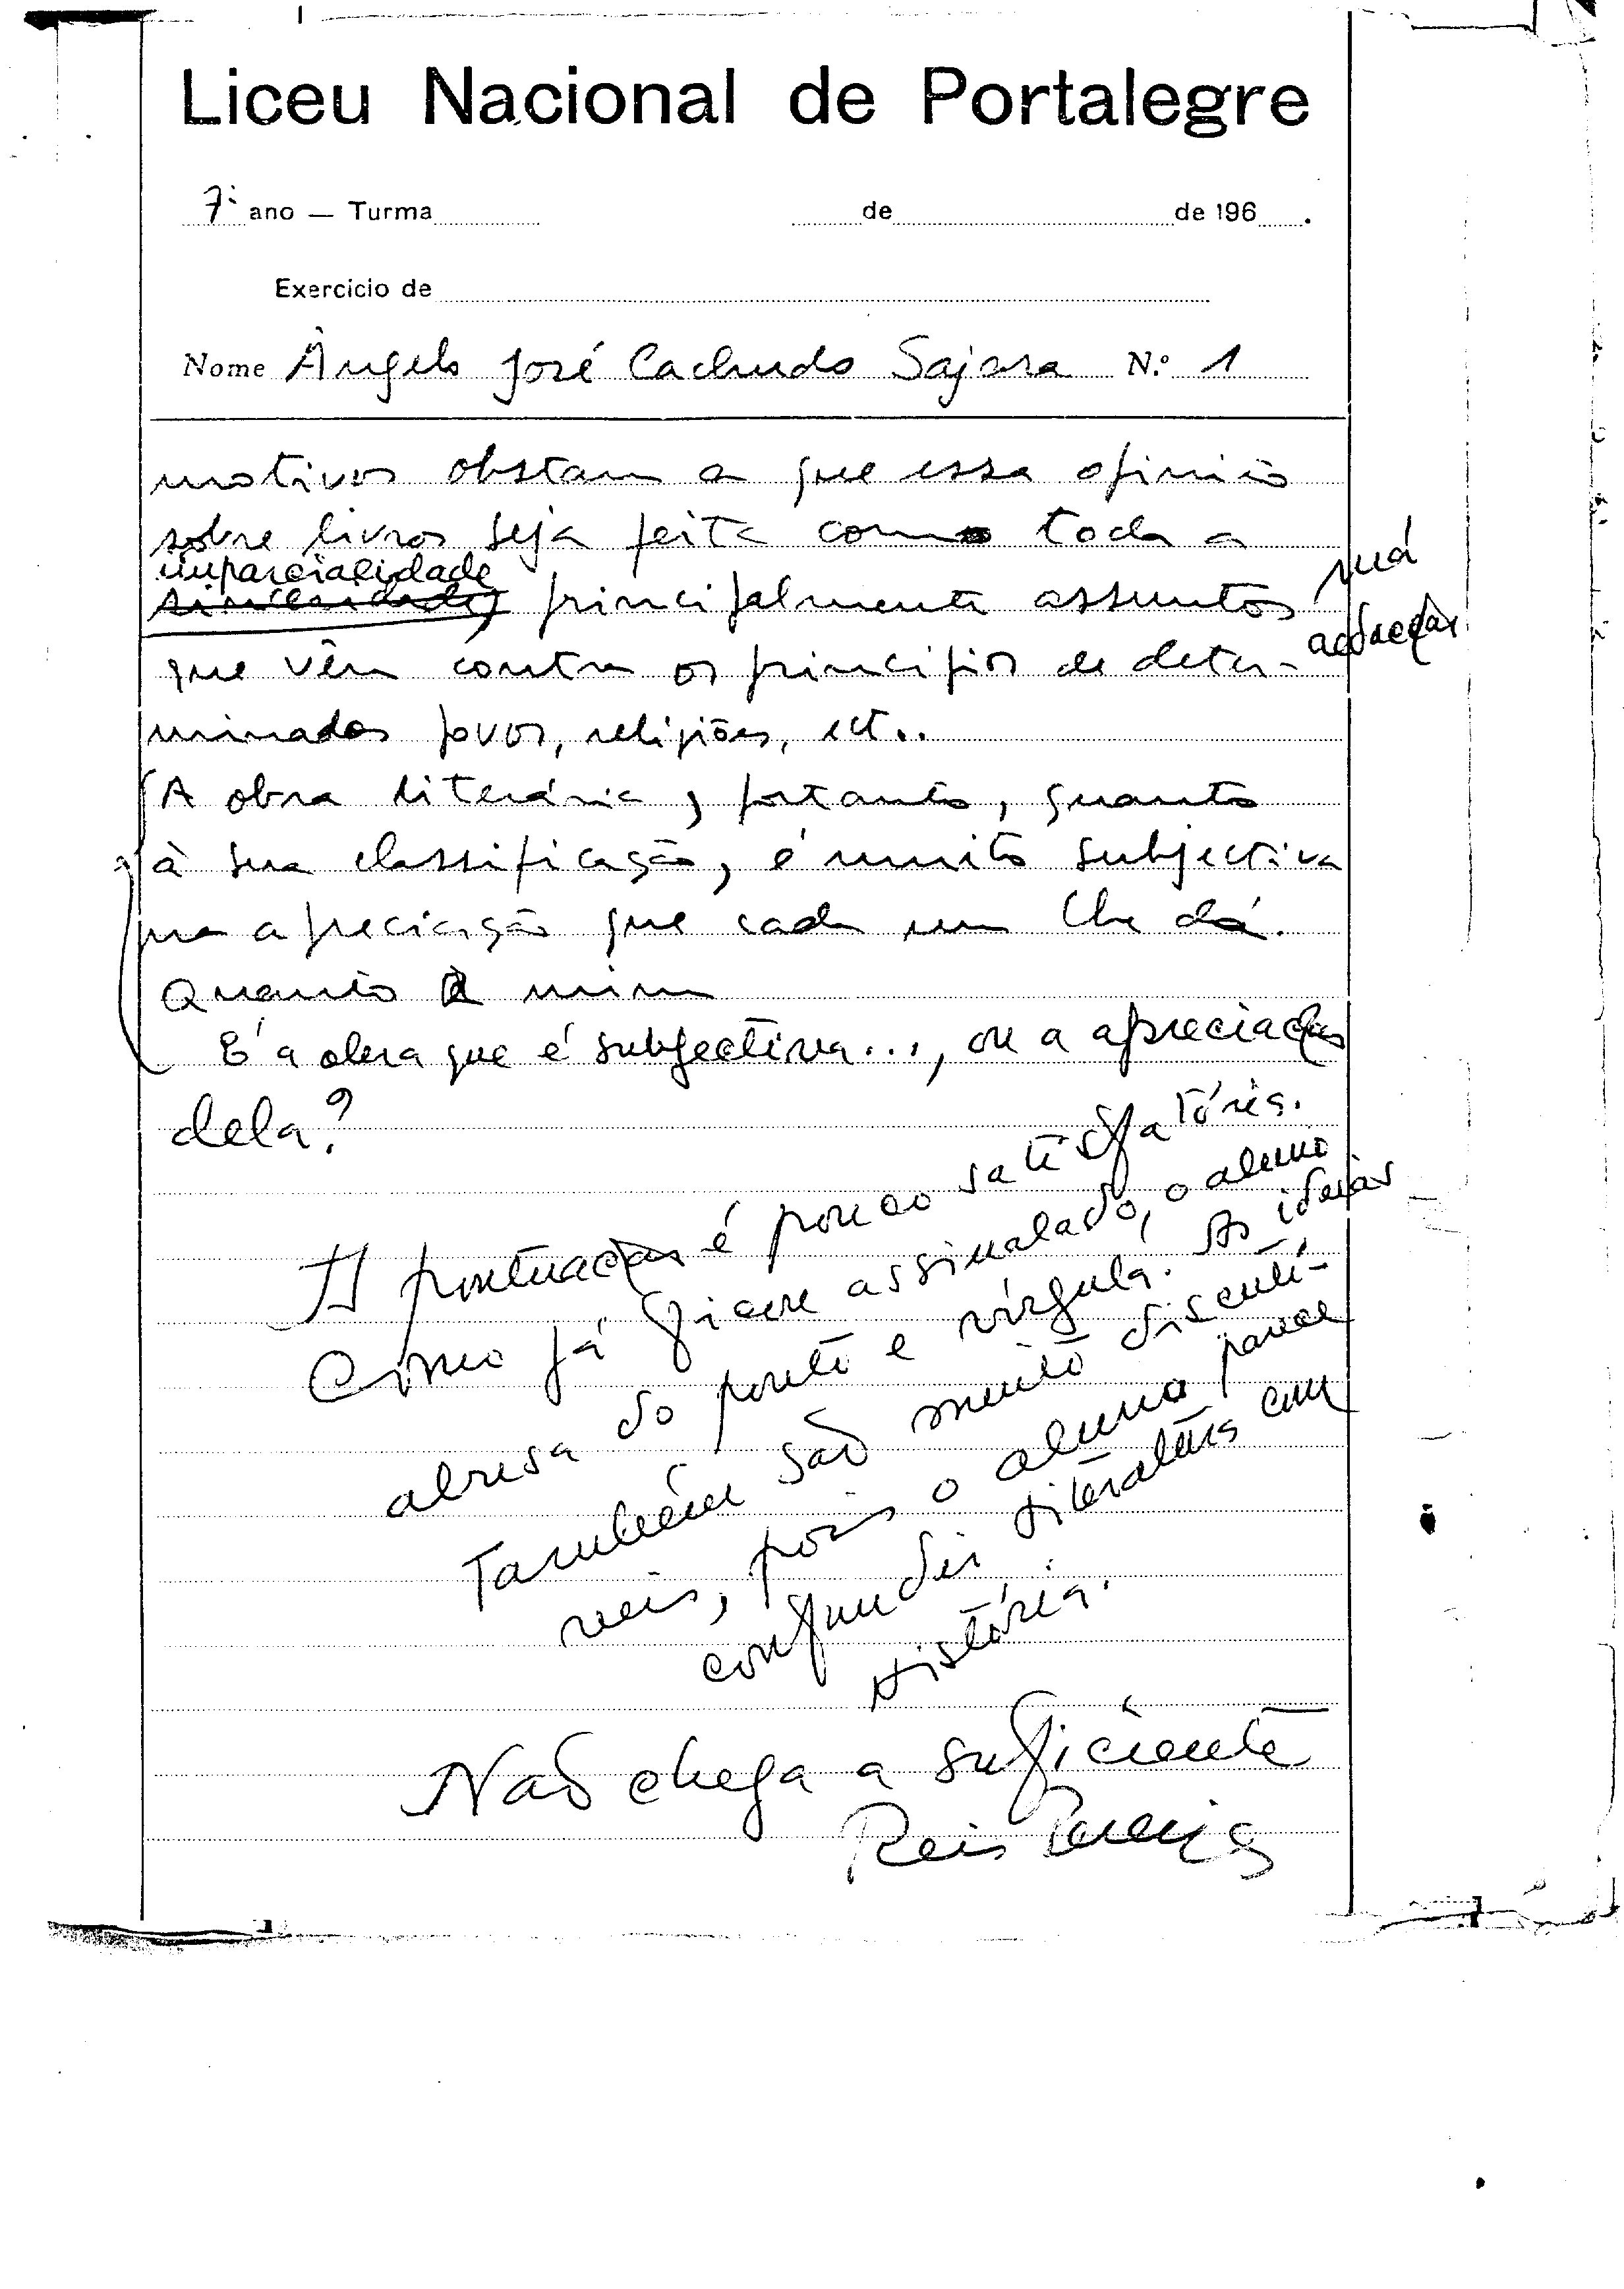 Liceu Nacional de Portalegre
7º ano — Turma
de de 196 .
Exercicio de
Nome Ângelo José Cachudo Sajara N.º 1
motivos obstam a que essa opinião
sobre livros seja feita como toda a
imparcialidade
sinceridade, principalmente assuntos
má
acepção
que vêm contra os princípios de deter-
minados povos, religiões, ect..
A obra literária, portanto, quanto
à sua classificação, é muito subjectiva
na apreciação que cada um lhe dá.
Quanto a mim
É a obra que é subjectiva..., ou a apreciação
dela?
A pontuação é pouco satisfatória.
Como já ficou assinalado, o aluno
abusa do ponto e vírgula. As ideias
Também são muito discutí-
veis, pois o aluno parece
confundir Literatura com
História.
Não chega a suficiente
Reis Pereira